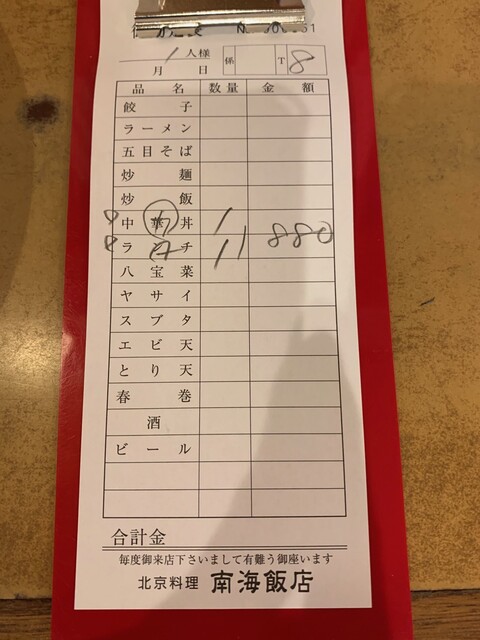 1 人様 係 T 8
月 日
品名 数量 金額
餃子
ラーメン
五目そば
炒麺
炒飯
中華丼 1
ラーチ 11 880
八宝菜
ヤサイ
スブタ
エビ天
とり天
春巻
酒
ビール
合計金
毎度御来店下さいまして有難う御座います
北京料理 南海飯店